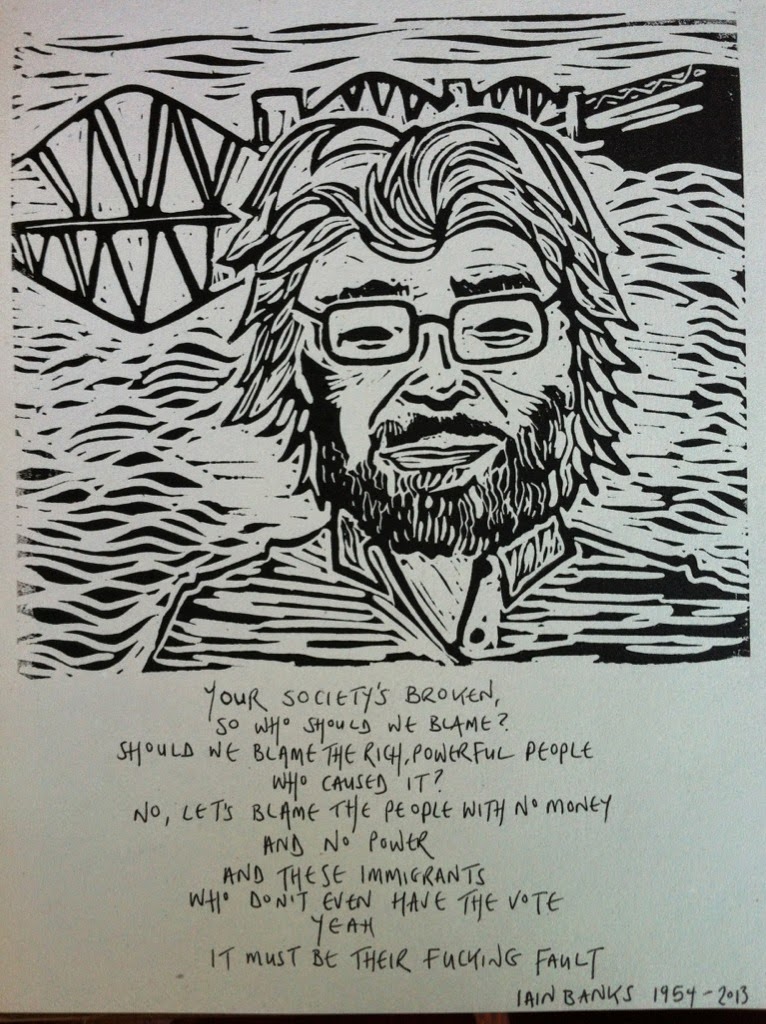 YOUR SOCIETY'S BROKEN,
SO WHO SHOULD WE BLAME?
SHOULD WE BLAME THE RICH, POWERFUL PEOPLE
WHO CAUSED IT?
NO, LET'S BLAME THE PEOPLE WITH NO MONEY
AND NO POWER
AND THESE IMMIGRANTS
WHO DON'T EVEN HAVE THE VOTE
YEAH
IT MUST BE THEIR FUCKING FAULT
IAIN BANKS 1954-2013